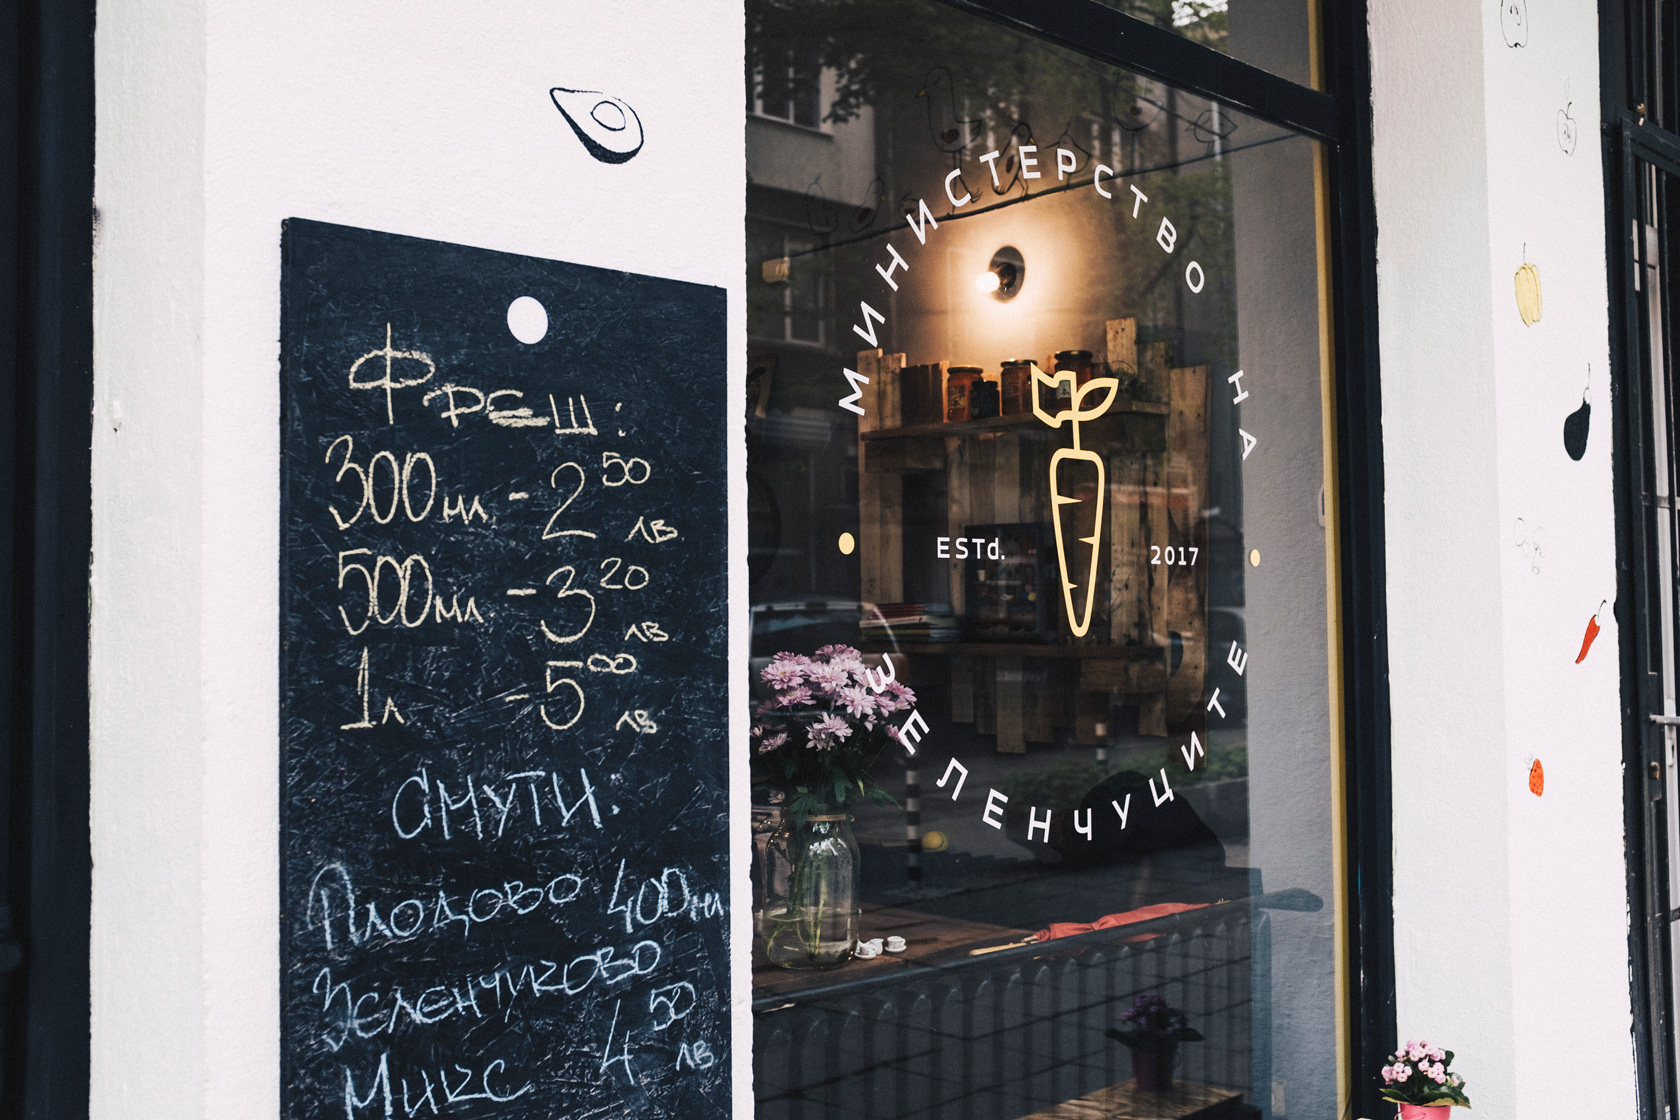 Фреш:
300мл - 2 50 лв
500мл - 3 20 лв
1л - 5 00 лв
СМУТИ:
Плодово 400мл
Зеленчуково
4 50 лв
Микс
МИНИСТЕРСТВО НА
ESTd. 2017
ЗЕЛЕНЧУЦИТЕ